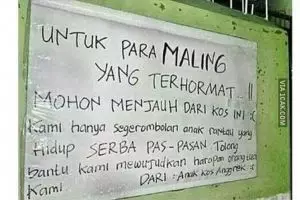 UNTUK PARA MALING
YANG TERHORMAT... !!
MOHON MENJAUH DARI KOS INI :(
Kami hanya segerombolan anak rantau yang
Hidup SERBA PAS-PASAN Tolong
bantu kami mewujudkan harapan orang tua
Kami.
DARI : Anak kos Anggrek :(
VIA 1CAK.COM